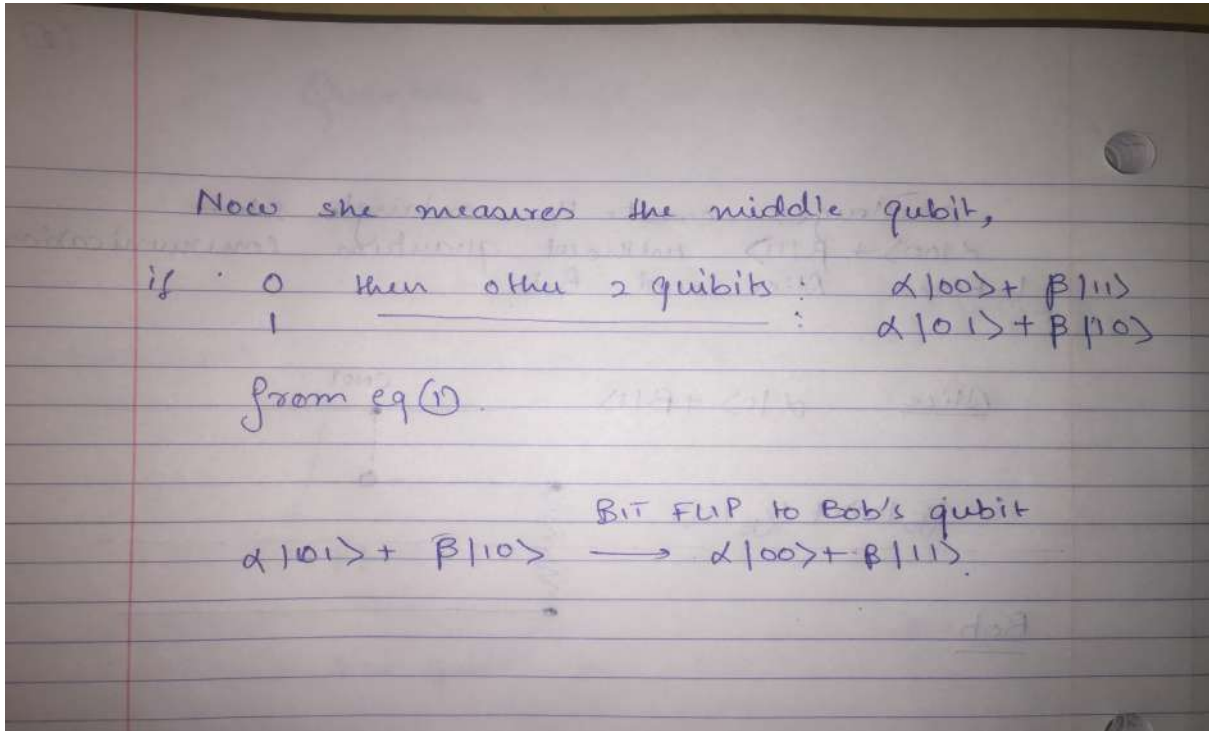 Now she measures the middle qubit,
if · 0 then other 2 quibits : α|00> + β|11>
1 ———— : α|01> + β|10>
from eq ①.
BIT FLIP to Bob's qubit
α|01> + β|10> → α|00> + β|11>.